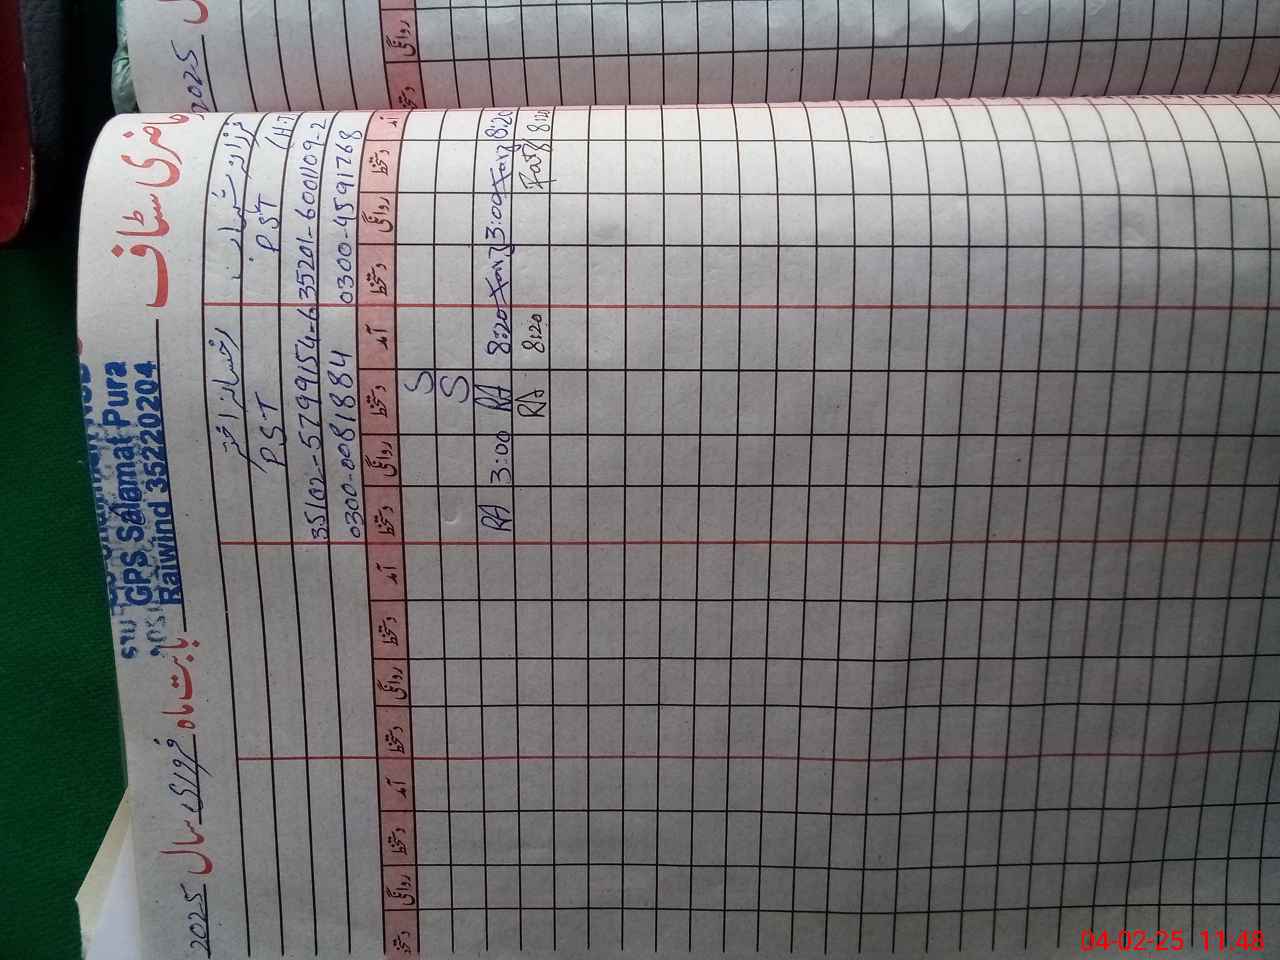 حاضری سٹاف
GPS Salamat Pura
Raiwind 35220204
بابت ماہ فروری سال 2025
رخسانہ اختر
P.S.T
P.S.T
(H.T
35201-6001109-2
35102-5799154-6
0300-4591768
0300-0081884
آمد دستخط روانگی دستخط آمد دستخط روانگی دستخط آمد دستخط روانگی دستخط آمد دستخط روانگی دستخط
S
S
8:20 Farz 3:00 Farz 8:20 RA 3:00 RA
8:20 Farz 8:20 RA
2025
روانگی
04-02-25 11:48